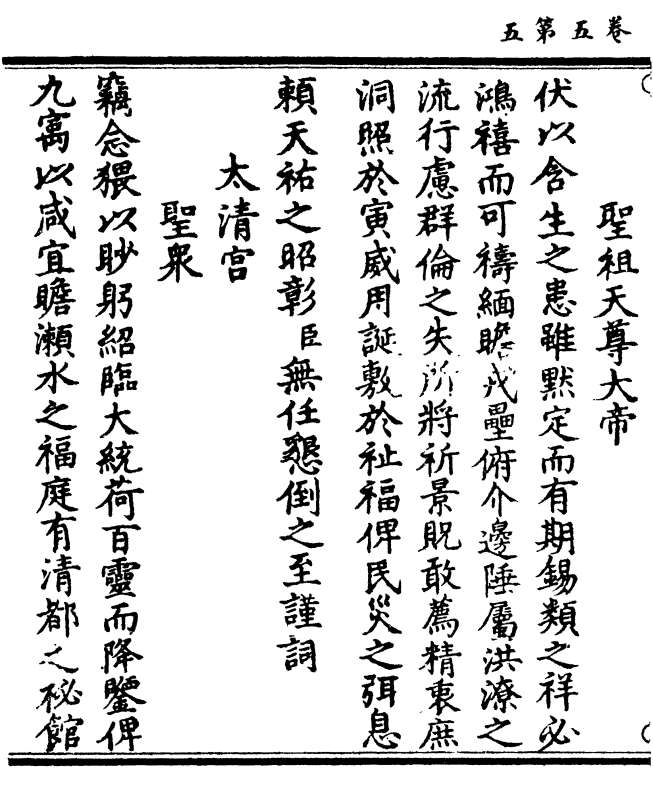 卷五第五
聖祖天尊大帝
伏以含生之患雖默定而有期錫類之祥必
鴻禧而可禱緬瞻戎壘俯介邊陲屬洪潦之
流行慮群倫之失所將祈景貺敢薦精衷庶
洞照於寅威用誕敷於祉福俾民災之弭息
賴天祐之昭彰臣無任懇倒之至謹詞
太清宮
聖衆
竊念猥以眇躬紹臨大統荷百靈而降鑒俾
九㝢以咸宜瞻瀨水之福庭有清都之祕館